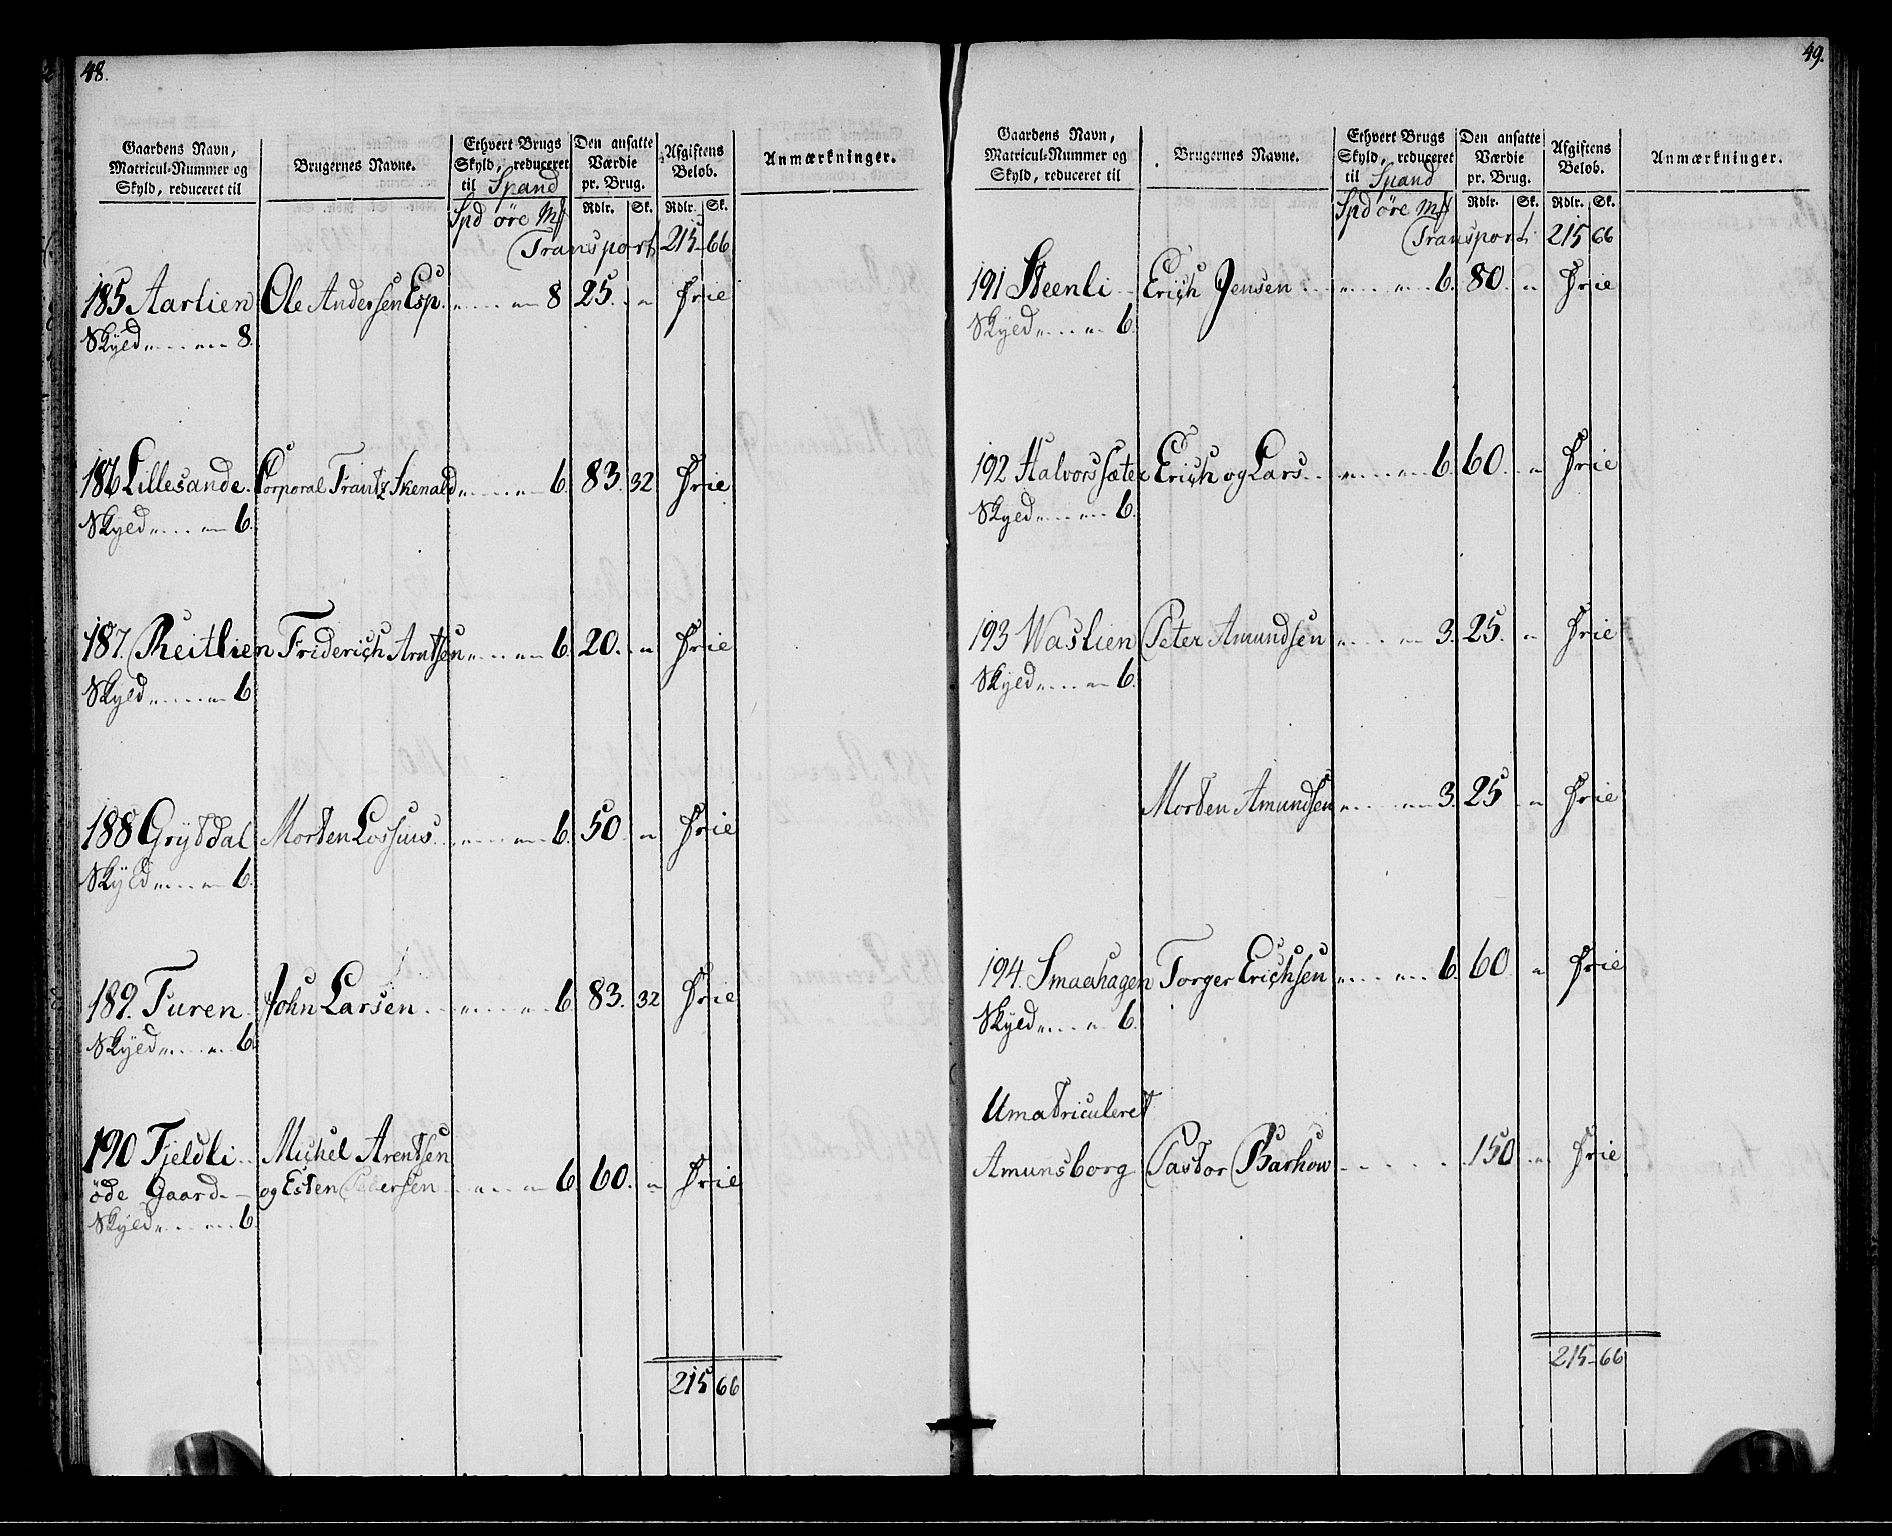 48.
Gaardens Navn,
Matricul-Nummer og
Skyld, reduceret til
Brugernes Navne.
Ethvert Brugs
Skyld, reduceret
til Spand
Den ansatte
Værdie
pr. Brug.
Afgiftens
Beløb.
Anmærkninger.
Rdlr. Sk. Rdlr. Sk.
Spd öre Mk
Transport 215 66
185 Aarlien Ole Andersen Esp. 8 25. " frie
Skyld 8.
186 Lillesande Corporal Frantz Skenald 6. 83. 32 frie
Skyld 6.
187. Reitlien Friderich Arntsen 6. 20. " frie
Skyld 6.
188 Grytdal Morten Lossius 6. 50. " frie
Skyld 6.
189. Furen John Larsen 6. 83. 32 frie
Skyld 6.
190 Fjeldli Michel Arentsen
öde Gaard og Esten Pedersen 6. 60. " frie
Skyld 6.
215 66
49.
Gaardens Navn,
Matricul-Nummer og
Skyld, reduceret til
Brugernes Navne.
Ethvert Brugs
Skyld, reduceret
til Spand
Den ansatte
Værdie
pr. Brug.
Afgiftens
Beløb.
Anmærkninger.
Rdlr. Sk. Rdlr. Sk.
Spd öre Mk
Transport 215 66
191 Steenli Erich Jensen 6. 80. " frie
Skyld 6.
192 Halvorssæter Erich og Lars 6. 60. " frie
Skyld 6.
193 Waslien Peter Amundsen 3. 25. " frie
Skyld 6.
Morten Amundsen 3. 25 " frie
194. Smaahagen Torger Erichsen 6. 60. " frie
Skyld 6.
Umatriculeret
Amunsborg Pastor Barhow 150 " frie
215 66